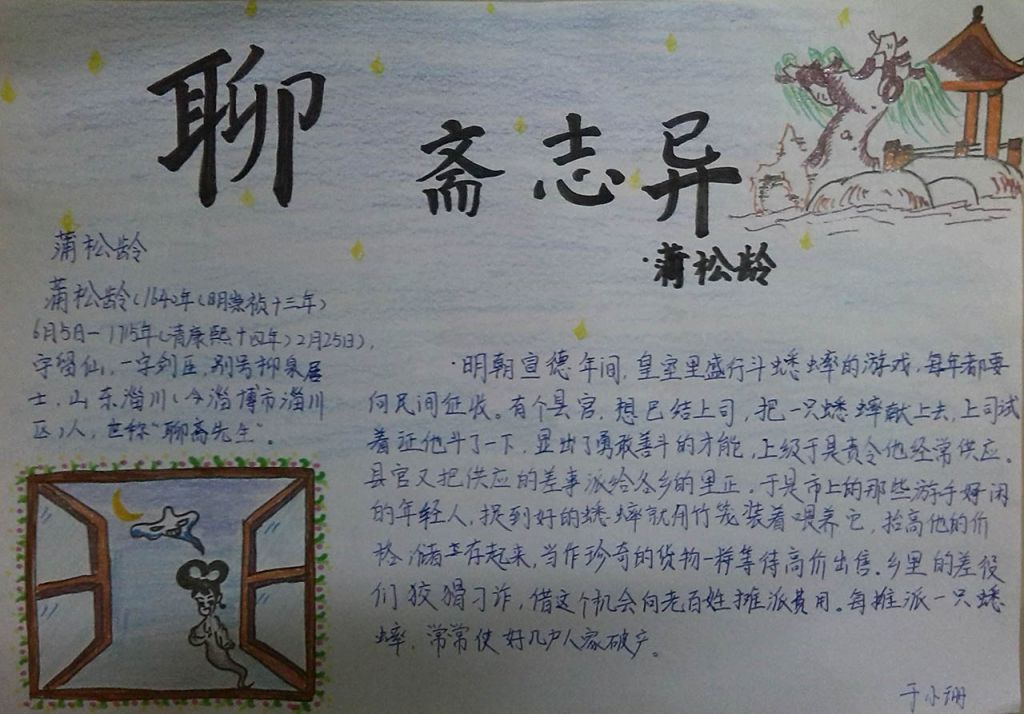 聊斋志异
·蒲松龄
蒲松龄
蒲松龄(1640年(明崇祯十三年)
6月5日-1715年(清康熙十四年)2月25日),
字留仙,一字剑臣,别号柳泉居
士,山东淄川(今淄博市淄川
区)人,世称“聊斋先生”。
·明朝宣德年间,皇室里盛行斗蟋蟀的游戏,每年都要
向民间征收。有个县官,想巴结上司,把一只蟋蟀献上去,上司试
着让他斗了一下,显出了勇敢善斗的才能,上级于是责令他经常供应。
县官又把供应的差事派给各乡的里正。于是市上的那些游手好闲
的年轻人,捉到好的蟋蟀就用竹笼装着喂养它,抬高他的价
格储存起来,当作珍奇的货物一样等待高价出售。乡里的差役
们狡猾刁诈,借这个机会向老百姓摊派费用。每摊派一只蟋
蟀,常常使好几户人家破产。
于小珊